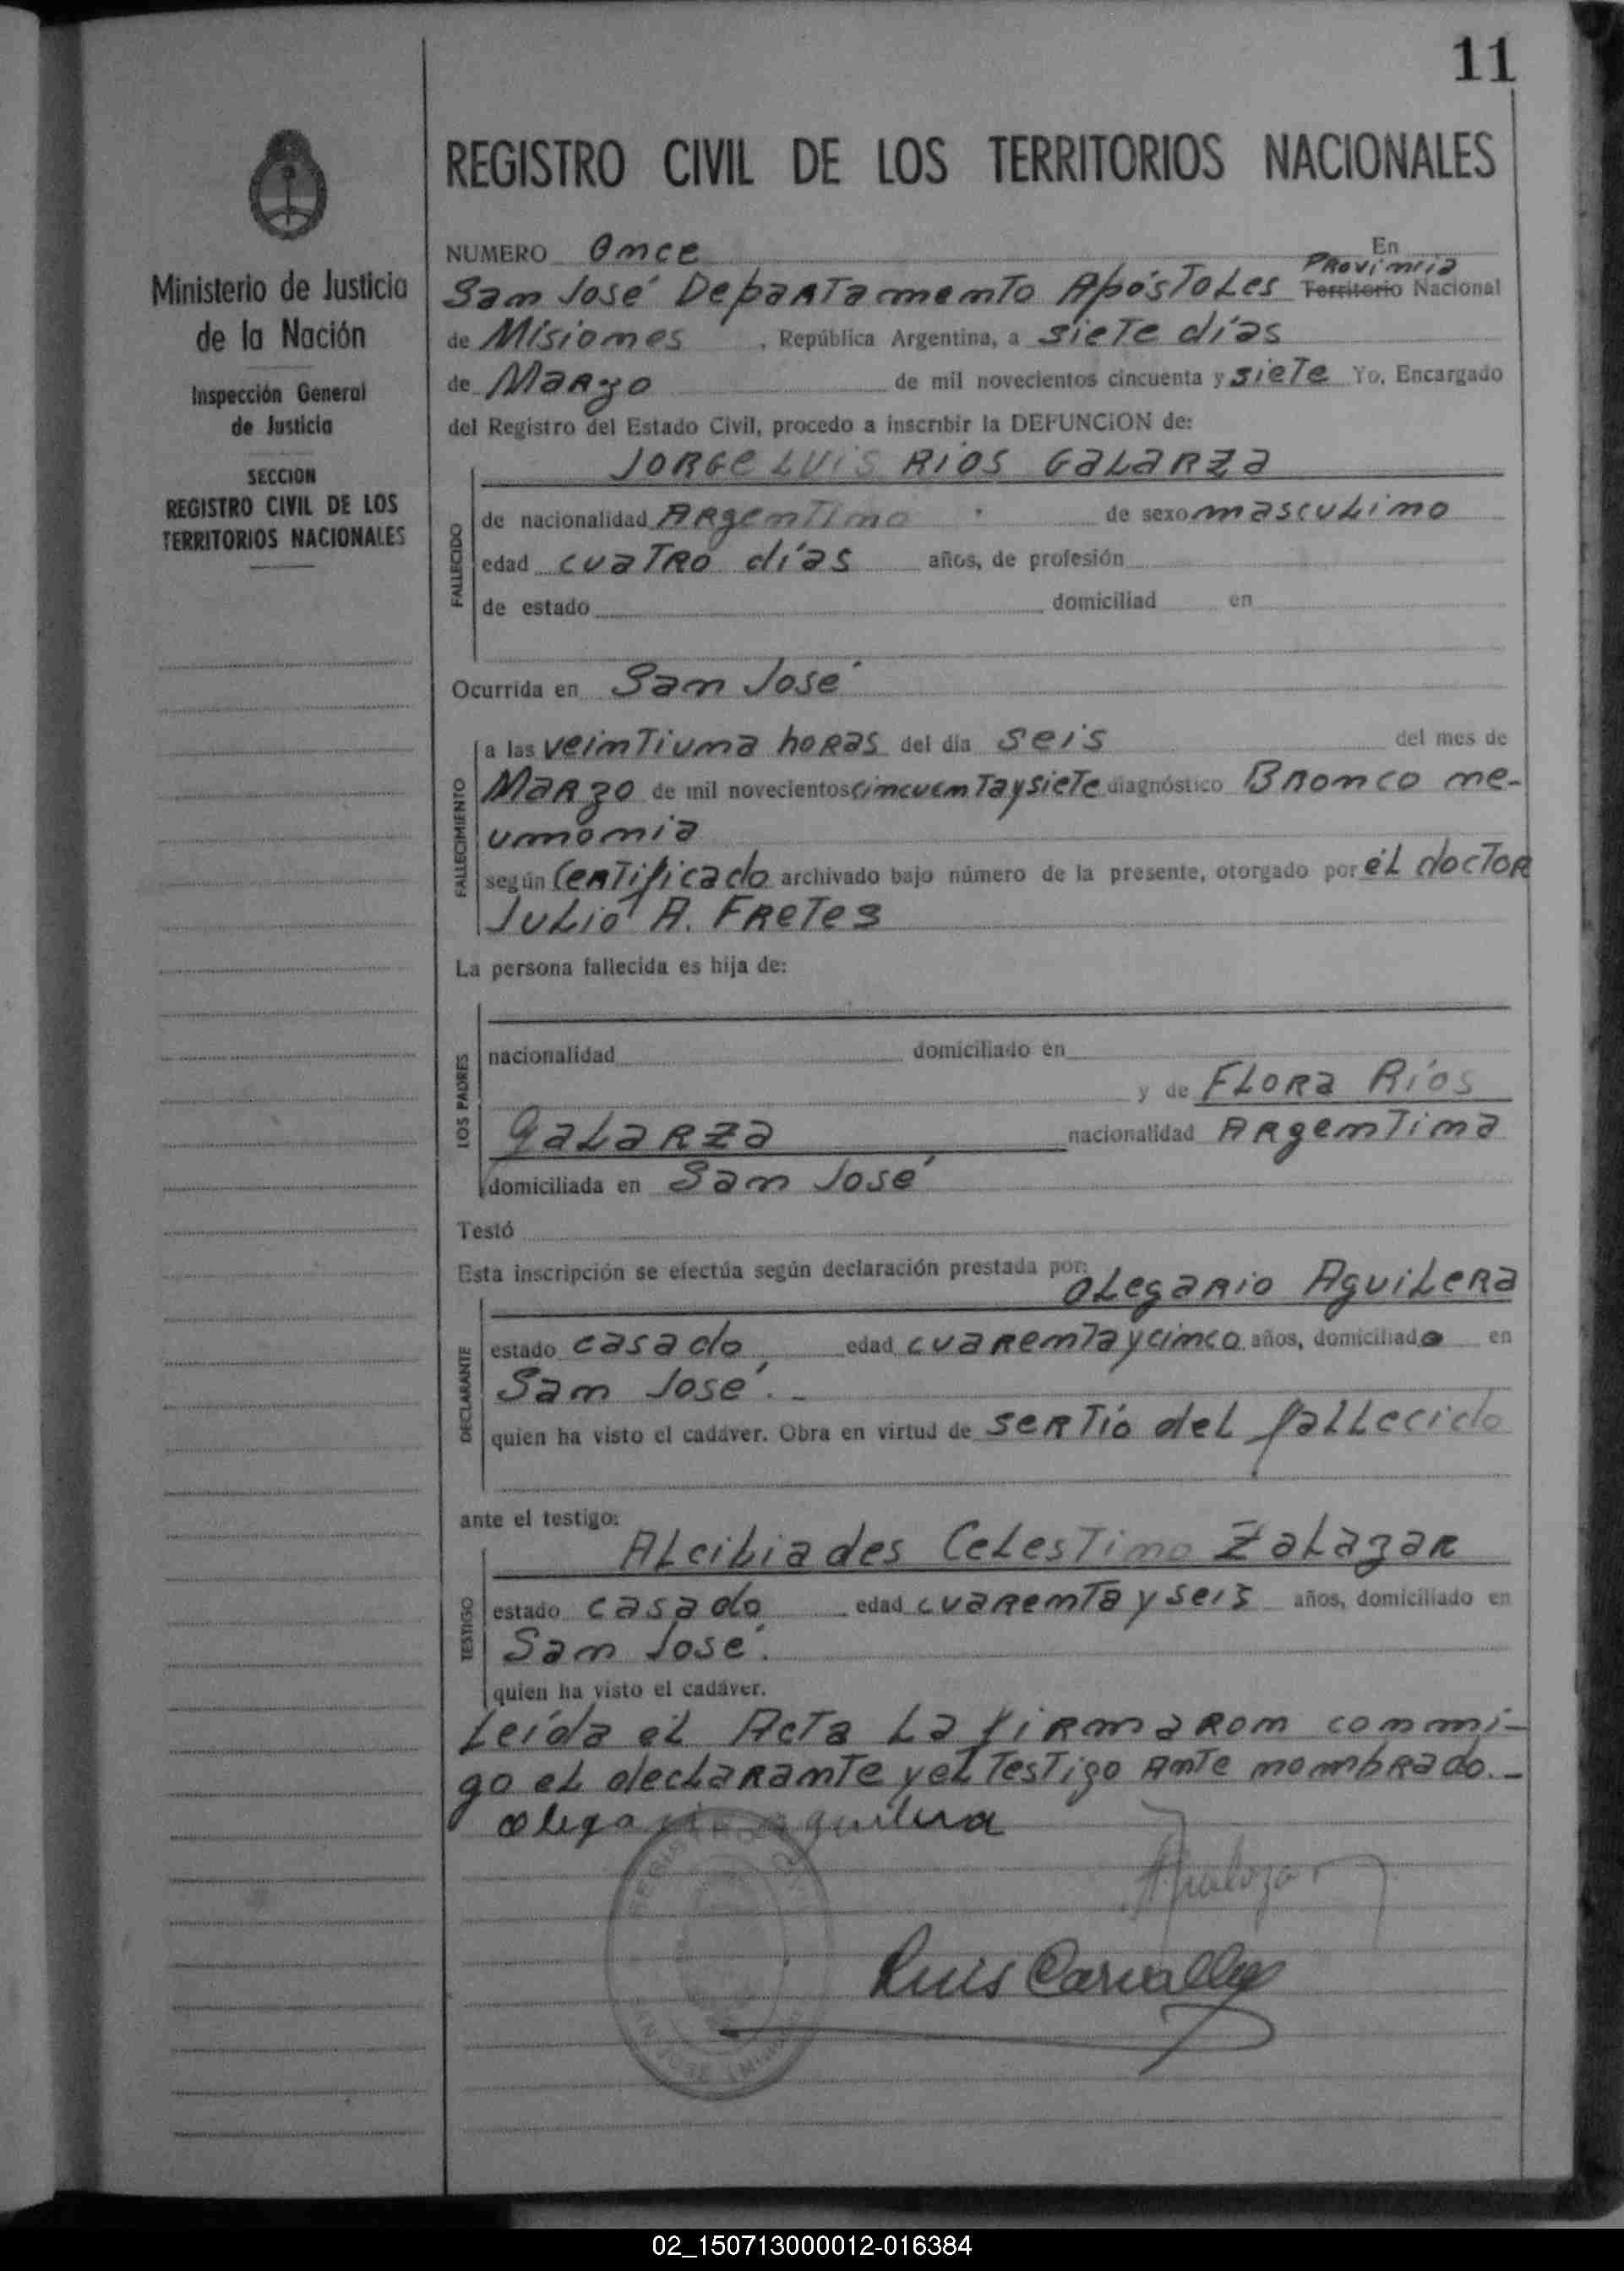 11
Ministerio de Justicia
de la Nación
Inspección General
de Justicia
SECCION
REGISTRO CIVIL DE LOS
TERRITORIOS NACIONALES
REGISTRO CIVIL DE LOS TERRITORIOS NACIONALES
NUMERO Once En
San José Departamento Apóstoles Provincia Territorio Nacional
de Misiones, República Argentina, a siete días
de Marzo de mil novecientos cincuenta y siete Yo, Encargado
del Registro del Estado Civil, procedo a inscribir la DEFUNCION de:
JORGE LUIS RIOS GALARZA
FALLECIDO
de nacionalidad Argentino de sexo masculino
edad cuatro días años, de profesión
de estado domiciliad en
Ocurrida en San José
FALLECIMIENTO
a las veintiuna horas del día seis del mes de
Marzo de mil novecientos cincuentaysiete diagnóstico Bronco ne-
umonia
según Certificado archivado bajo número de la presente, otorgado por él doctor
Julio A. Fretes
La persona fallecida es hija de:
LOS PADRES
nacionalidad domiciliado en
y de Flora Ríos
Galarza nacionalidad Argentina
domiciliada en San José
Testó
Esta inscripción se efectúa según declaración prestada por:
Olegario Aguilera
DECLARANTE
estado casado edad cuarentaycinco años, domiciliado en
San José.-
quien ha visto el cadáver. Obra en virtud de ser Tío del fallecido
ante el testigo:
Alcibiades Celestino Zalazar
TESTIGO
estado casado edad cuarenta y seis años, domiciliado en
San José.
quien ha visto el cadáver.
Leída el Acta la firmaron conmi-
go el declarante y el Testigo Ante nombrado.-
Olegario Aguilera
Luis Carvallo
02_150713000012-016384